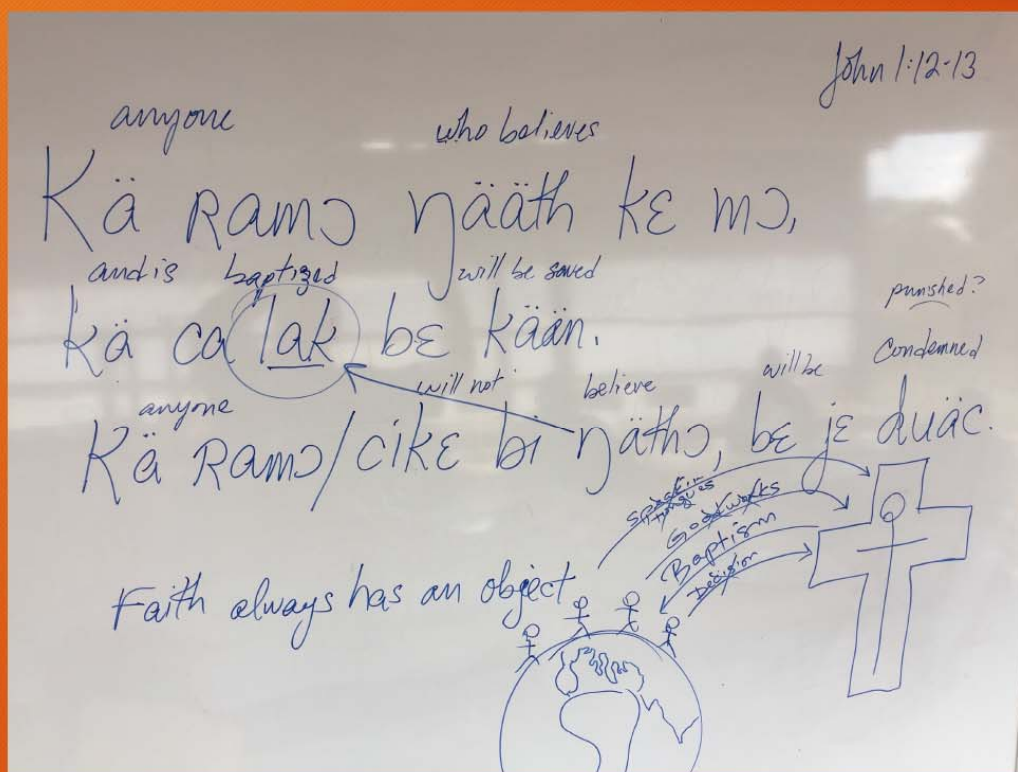 John 1:12-13
anyone who believes
Kä Ramɔ ŋääth kɛ mɔ,
and is baptized will be saved
kä ca lak bɛ kään.
punished?
anyone will not believe will be Condemned
Kä Ramɔ/cikɛ bi ŋäthɔ, bɛ jɛ duäc.
Speak in
tongues
Good works
Baptism
Decision
Faith always has an object